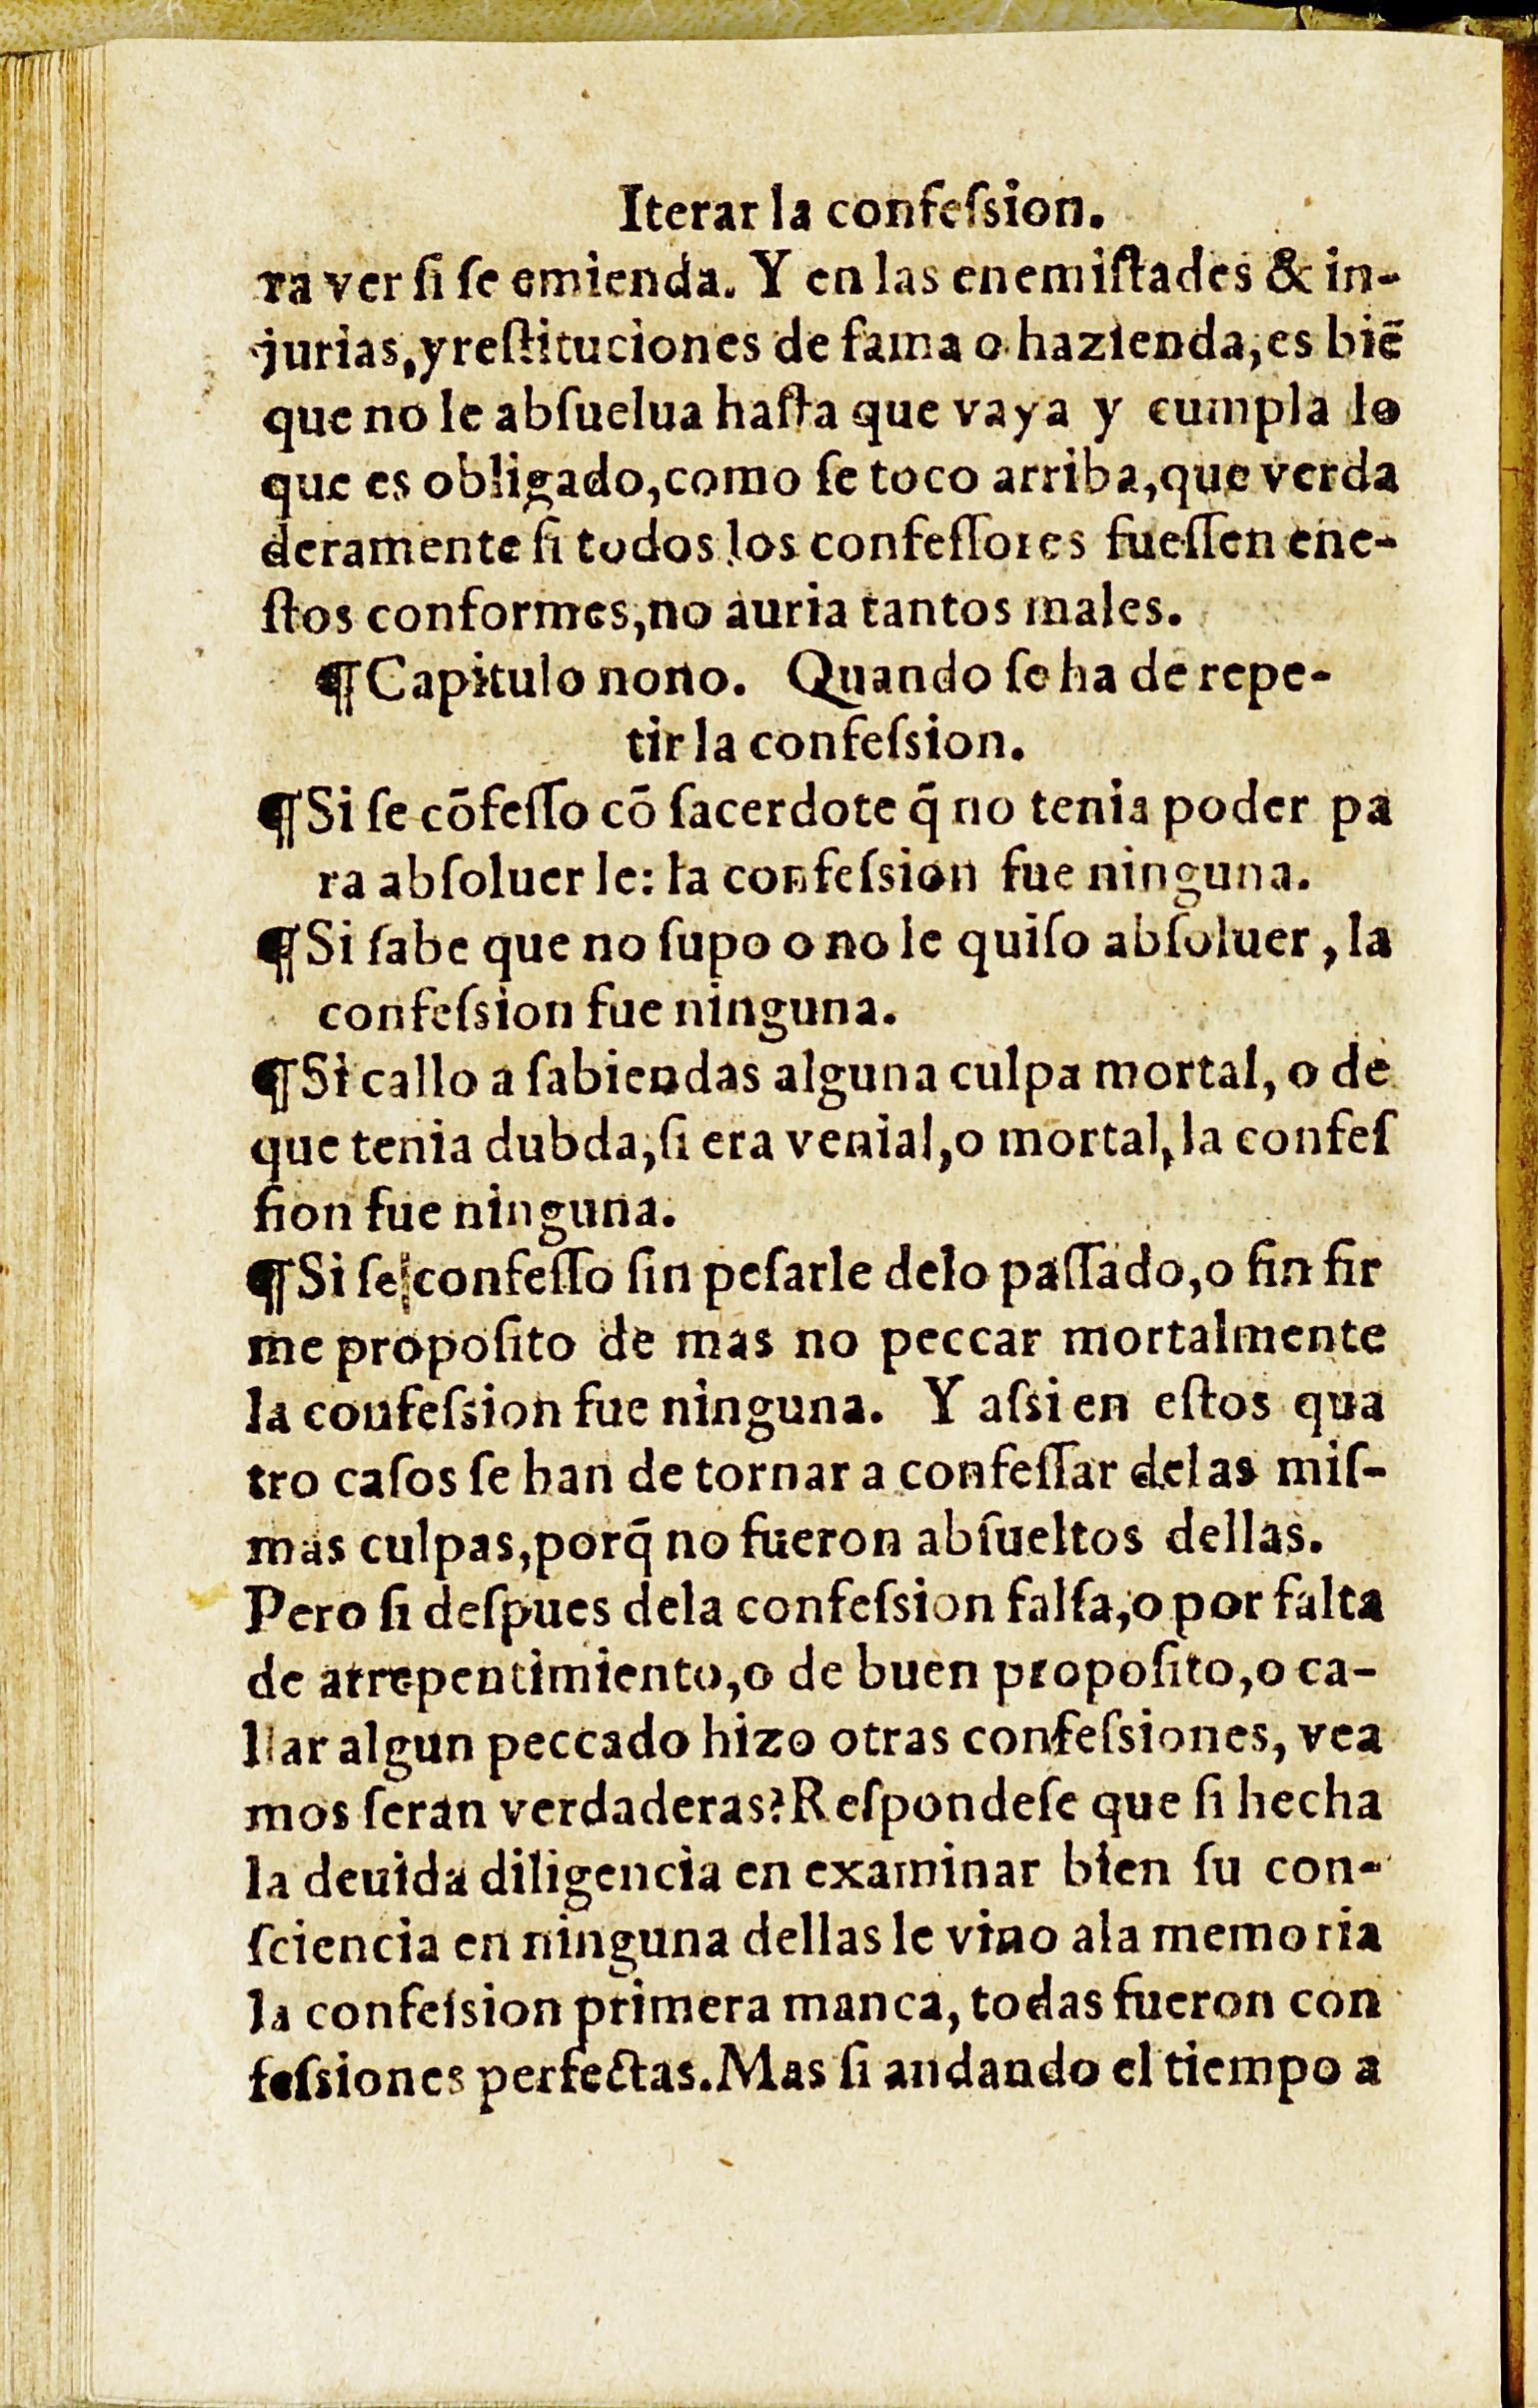 Iterar la confeſsion.
ra ver ſi ſe emienda. Y en las enemiſtades & in-
jurias, y reſtituciones de fama o hazienda, es biē
que no le abſuelua haſta que vaya y cumpla lo
que es obligado, como ſe toco arriba, que verda
deramente ſi todos los confeſſores fueſſen ene-
ſtos conformes, no auria tantos males.
¶ Capitulo nono. Quando ſe ha de repe-
tir la confeſsion.
¶ Si ſe cōfeſſo cō ſacerdote q̄ no tenia poder pa
ra abſoluer le: la confeſsion fue ninguna.
¶ Si ſabe que no ſupo o no le quiſo abſoluer, la
confeſsion fue ninguna.
¶ Si callo a ſabiendas alguna culpa mortal, o de
que tenia dubda, ſi era venial, o mortal, la confeſ
ſion fue ninguna.
¶ Si ſe confeſſo ſin peſarle delo paſſado, o ſin fir
me propoſito de mas no peccar mortalmente
la coufeſsion fue ninguna. Y aſsi en eſtos qua
tro caſos ſe han de tornar a confeſſar delas miſ-
mas culpas, porq̄ no fueron abſueltos dellas.
Pero ſi deſpues dela confeſsion falſa, o por falta
de arrepentimiento, o de buen propoſito, o ca-
llar algun peccado hizo otras confeſsiones, vea
mos ſeran verdaderas? Reſpondeſe que ſi hecha
la deuida diligencia en examinar bien ſu con-
ſciencia en ninguna dellas le vino ala memoria
la confeſsion primera manca, todas fueron con
feſsiones perfectas. Mas ſi andando el tiempo a